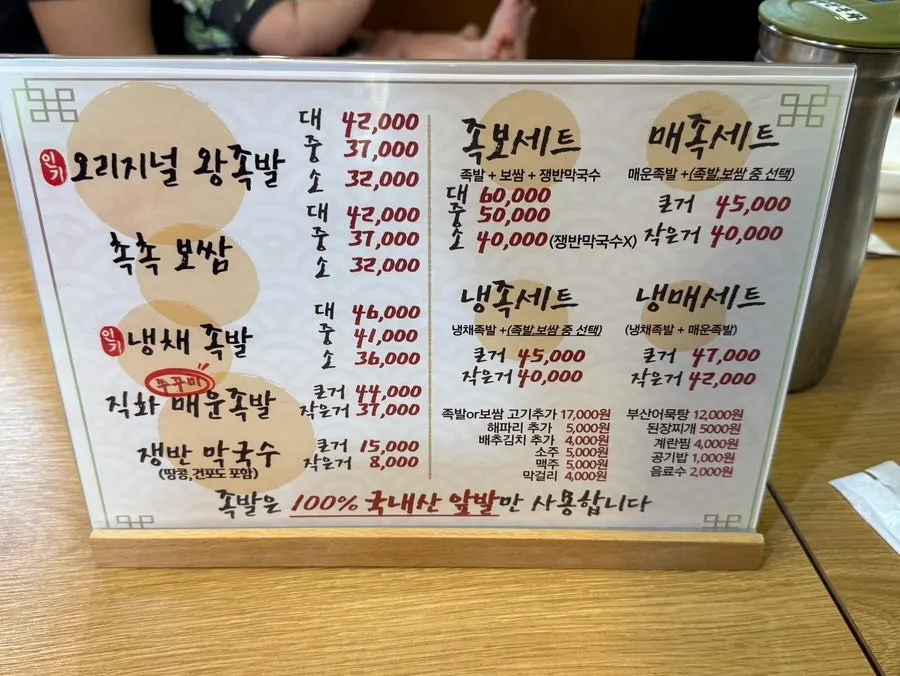 인기 오리지널 왕족발
대 42,000
중 37,000
소 32,000
촉촉 보쌈
대 42,000
중 37,000
소 32,000
인기 냉채 족발
대 46,000
중 41,000
소 36,000
쭈꾸미
직화 매운족발
큰거 44,000
작은거 37,000
쟁반 막국수
(땅콩,건포도 포함)
큰거 15,000
작은거 8,000
족보세트
족발 + 보쌈 + 쟁반막국수
대 60,000
중 50,000
소 40,000(쟁반막국수X)
매족세트
매운족발 +(족발,보쌈 중 선택)
큰거 45,000
작은거 40,000
냉족세트
냉채족발 +(족발,보쌈 중 선택)
큰거 45,000
작은거 40,000
냉매세트
(냉채족발 + 매운족발)
큰거 47,000
작은거 42,000
족발or보쌈 고기추가 17,000원
해파리 추가 5,000원
배추김치 추가 4,000원
소주 5,000원
맥주 5,000원
막걸리 4,000원
부산어묵탕 12,000원
된장찌개 5000원
계란찜 4,000원
공기밥 1,000원
음료수 2,000원
족발은 100% 국내산 앞발만 사용합니다